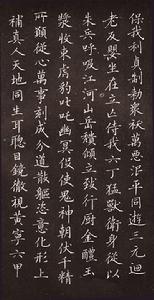 保我利貞制劫衆祅萬惡淨平同遊三元迴
老反嬰坐在立亡侍我六丁猛獸衛身從以
朱兵呼吸江河山岳積傾立致行廚金醴玉
漿收束虎豹叱咤幽冥役使鬼神朝伏千精
所願從心萬事剋成分道散軀恣意化形上
補真人天地同生耳聰目鏡徹視黃寧六甲